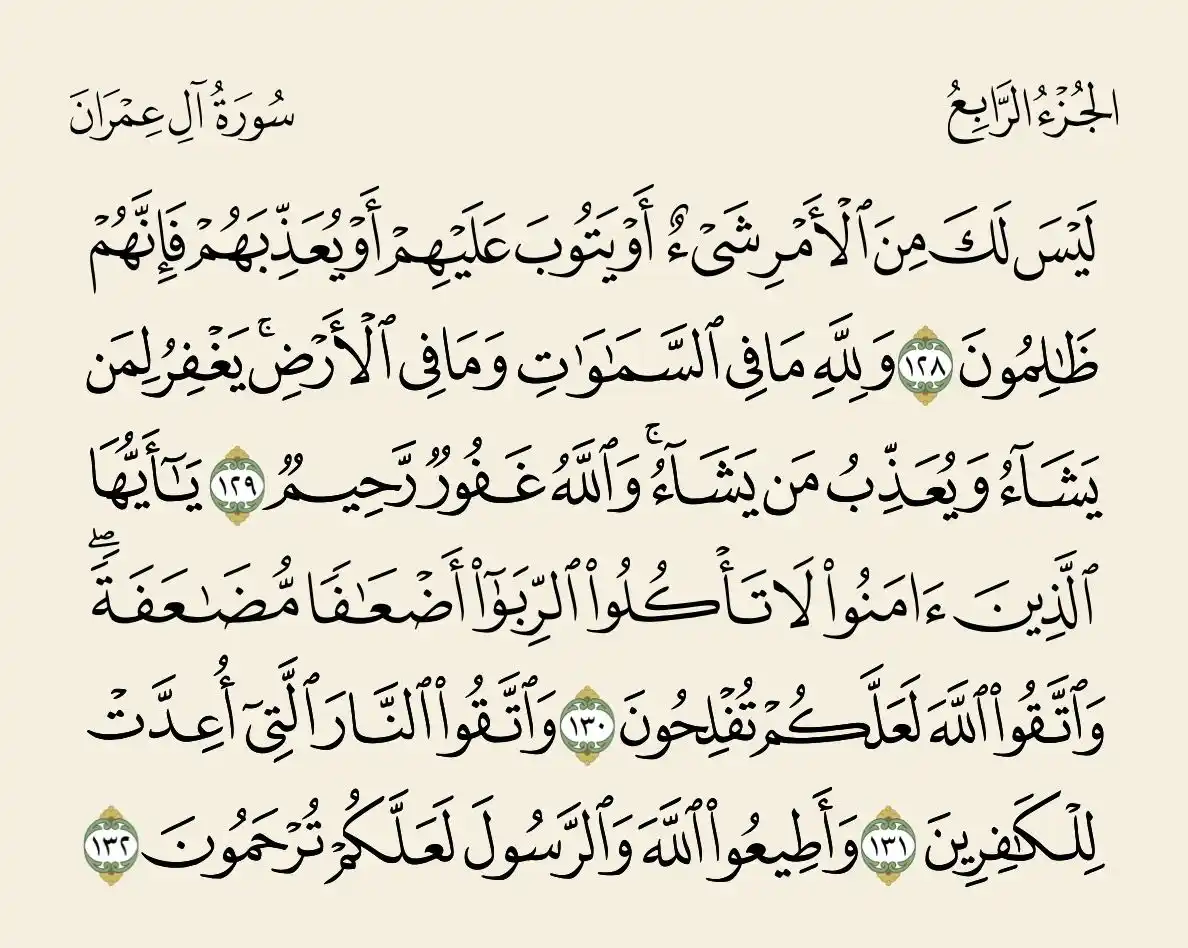 الجُزْءُ الرَّابِعُ
سُورَةُ آلِ عِمْرَانَ
لَيْسَ لَكَ مِنَ ٱلْأَمْرِ شَىْءٌ أَوْ يَتُوبَ عَلَيْهِمْ أَوْ يُعَذِّبَهُمْ فَإِنَّهُمْ
ظَٰلِمُونَ ١٢٨ وَلِلَّهِ مَا فِى ٱلسَّمَٰوَٰتِ وَمَا فِى ٱلْأَرْضِ ۚ يَغْفِرُ لِمَن
يَشَآءُ وَيُعَذِّبُ مَن يَشَآءُ ۚ وَٱللَّهُ غَفُورٌ رَّحِيمٌ ١٢٩ يَٰٓأَيُّهَا
ٱلَّذِينَ ءَامَنُوا۟ لَا تَأْكُلُوا۟ ٱلرِّبَوٰٓا۟ أَضْعَٰفًا مُّضَٰعَفَةً ۖ
وَٱتَّقُوا۟ ٱللَّهَ لَعَلَّكُمْ تُفْلِحُونَ ١٣٠ وَٱتَّقُوا۟ ٱلنَّارَ ٱلَّتِىٓ أُعِدَّتْ
لِلْكَٰفِرِينَ ١٣١ وَأَطِيعُوا۟ ٱللَّهَ وَٱلرَّسُولَ لَعَلَّكُمْ تُرْحَمُونَ ١٣٢